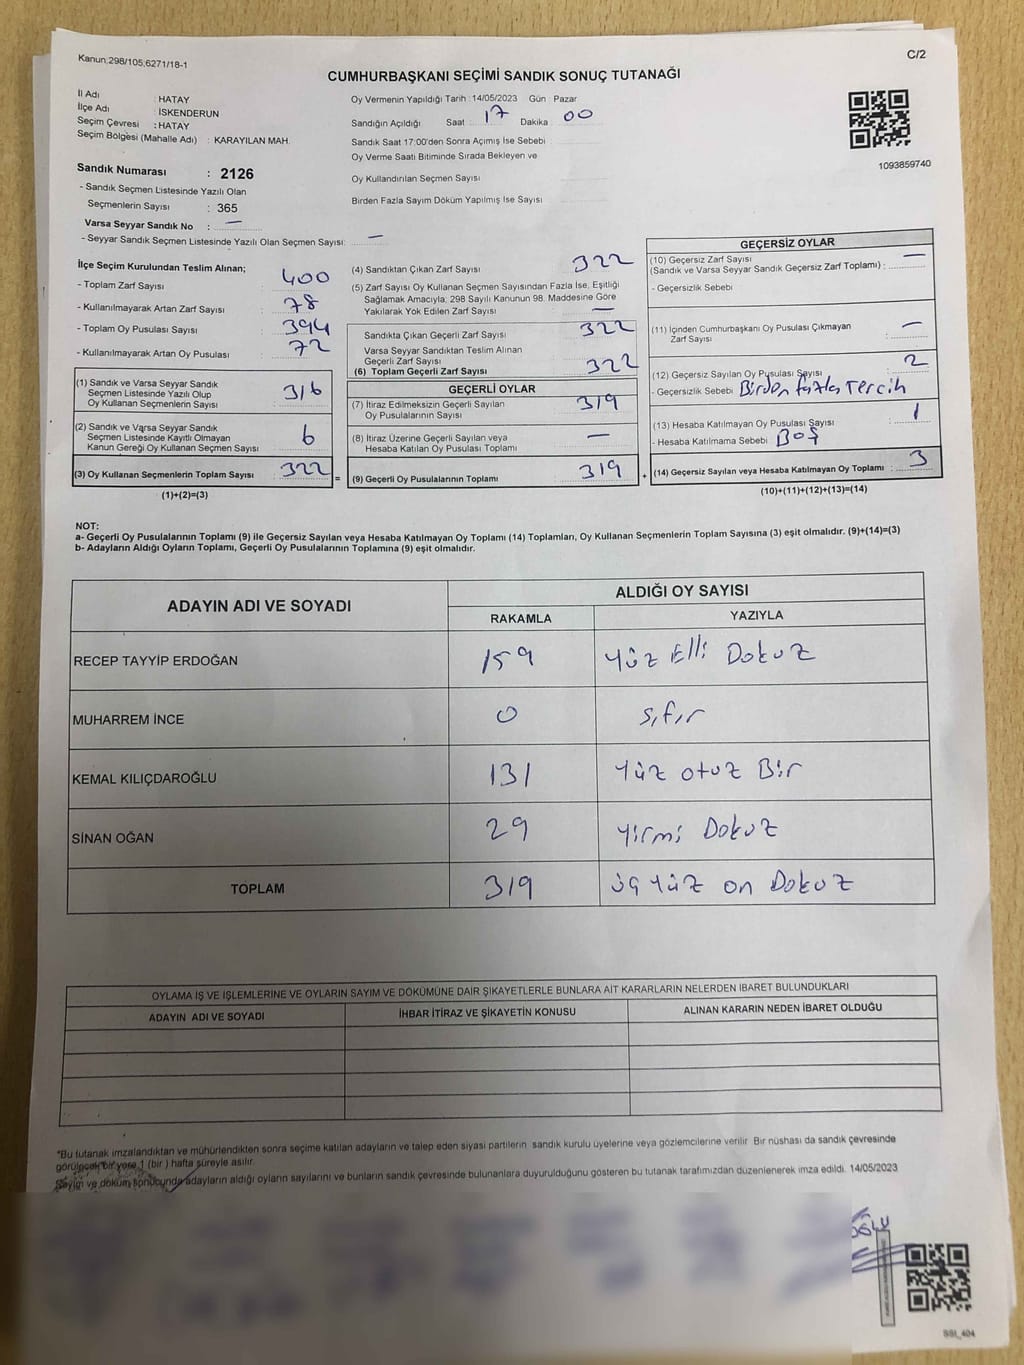 Kanun;298/105;6271/18-1
C/2
CUMHURBAŞKANI SEÇİMİ SANDIK SONUÇ TUTANAĞI
İl Adı : HATAY
İlçe Adı : İSKENDERUN
Seçim Çevresi : HATAY
Seçim Bölgesi (Mahalle Adı) : KARAYILAN MAH.
Sandık Numarası : 2126
- Sandık Seçmen Listesinde Yazılı Olan
Seçmenlerin Sayısı : 365
Varsa Seyyar Sandık No : —
- Seyyar Sandık Seçmen Listesinde Yazılı Olan Seçmen Sayısı: —
Oy Vermenin Yapıldığı Tarih :14/05/2023 Gün : Pazar
Sandığın Açıldığı Saat : 17 Dakika : 00
Sandık Saat 17:00'den Sonra Açımış İse Sebebi :
Oy Verme Saati Bitiminde Sırada Bekleyen ve
Oy Kullandırılan Seçmen Sayısı
Birden Fazla Sayım Döküm Yapılmış İse Sayısı
1093859740
İlçe Seçim Kurulundan Teslim Alınan;
- Toplam Zarf Sayısı : 400
- Kullanılmayarak Artan Zarf Sayısı : 78
- Toplam Oy Pusulası Sayısı : 394
- Kullanılmayarak Artan Oy Pusulası : 72
(1) Sandık ve Varsa Seyyar Sandık
Seçmen Listesinde Yazılı Olup
Oy Kullanan Seçmenlerin Sayısı : 316
(2) Sandık ve Varsa Seyyar Sandık
Seçmen Listesinde Kayıtlı Olmayan
Kanun Gereği Oy Kullanan Seçmen Sayısı : 6
(3) Oy Kullanan Seçmenlerin Toplam Sayısı : 322
(1)+(2)=(3)
(4) Sandıktan Çıkan Zarf Sayısı : 322
(5) Zarf Sayısı Oy Kullanan Seçmen Sayısından Fazla İse, Eşitliği
Sağlamak Amacıyla; 298 Sayılı Kanunun 98. Maddesine Göre
Yakılarak Yok Edilen Zarf Sayısı : —
Sandıkta Çıkan Geçerli Zarf Sayısı : 322
Varsa Seyyar Sandıktan Teslim Alınan
Geçerli Zarf Sayısı :
(6) Toplam Geçerli Zarf Sayısı : 322
GEÇERLİ OYLAR
(7) İtiraz Edilmeksizin Geçerli Sayılan
Oy Pusulalarının Sayısı : 319
(8) İtiraz Üzerine Geçerli Sayılan veya
Hesaba Katılan Oy Pusulası Toplamı : —
= (9) Geçerli Oy Pusulalarının Toplamı : 319
GEÇERSİZ OYLAR
(10) Geçersiz Zarf Sayısı
(Sandık ve Varsa Seyyar Sandık Geçersiz Zarf Toplamı) : —
- Geçersizlik Sebebi
(11) İçinden Cumhurbaşkanı Oy Pusulası Çıkmayan
Zarf Sayısı : —
(12) Geçersiz Sayılan Oy Pusulası Sayısı : 2
- Geçersizlik Sebebi Birden fazla Tercih
(13) Hesaba Katılmayan Oy Pusulası Sayısı : 1
- Hesaba Katılmama Sebebi : Boş
+ (14) Geçersiz Sayılan veya Hesaba Katılmayan Oy Toplamı : 3
(10)+(11)+(12)+(13)=(14)
NOT:
a- Geçerli Oy Pusulalarının Toplamı (9) ile Geçersiz Sayılan veya Hesaba Katılmayan Oy Toplamı (14) Toplamları, Oy Kullanan Seçmenlerin Toplam Sayısına (3) eşit olmalıdır. (9)+(14)=(3)
b- Adayların Aldığı Oyların Toplamı, Geçerli Oy Pusulalarının Toplamına (9) eşit olmalıdır.
ADAYIN ADI VE SOYADI ALDIĞI OY SAYISI
RAKAMLA YAZIYLA
RECEP TAYYİP ERDOĞAN 159 Yüz Elli Dokuz
MUHARREM İNCE 0 sıfır
KEMAL KILIÇDAROĞLU 131 Yüz otuz Bir
SİNAN OĞAN 29 Yirmi Dokuz
TOPLAM 319 üç Yüz on Dokuz
OYLAMA İŞ VE İŞLEMLERİNE VE OYLARIN SAYIM VE DÖKÜMÜNE DAİR ŞİKAYETLERLE BUNLARA AİT KARARLARIN NELERDEN İBARET BULUNDUKLARI
ADAYIN ADI VE SOYADI İHBAR İTİRAZ VE ŞİKAYETİN KONUSU ALINAN KARARIN NEDEN İBARET OLDUĞU
*Bu tutanak imzalandıktan ve mühürlendikten sonra seçime katılan adayların ve talep eden siyasi partilerin sandık kurulu üyelerine veya gözlemcilerine verilir. Bir nüshası da sandık çevresinde
görülecek bir yere 1 (bir) hafta süreyle asılır.
Sayım ve döküm sonucunda adayların aldığı oyların sayılarını ve bunların sandık çevresinde bulunanlara duyurulduğunu gösteren bu tutanak tarafımızdan düzenlenerek imza edildi. 14/05/2023
OĞLU
SSI_404